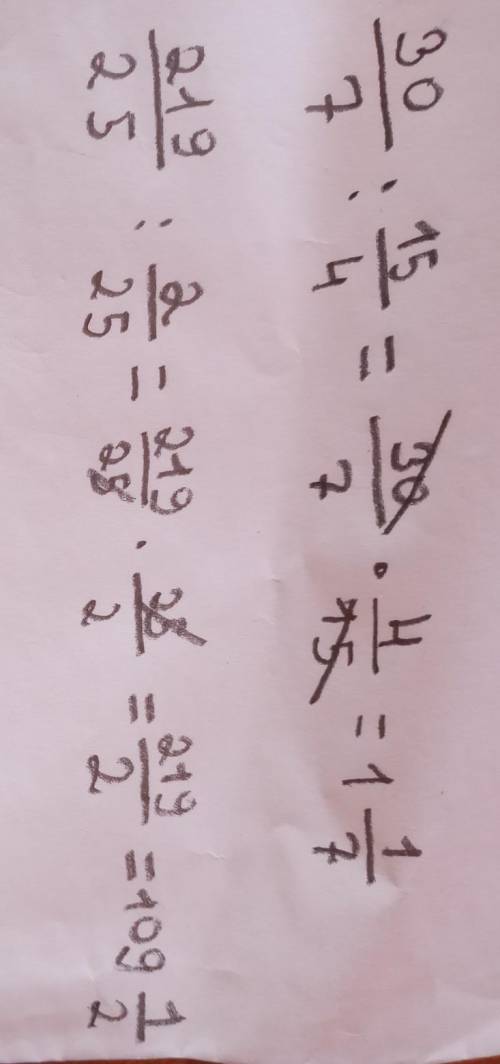 30/7 : 15/4 = 30/7 · 4/15 = 1 1/7
219/25 : 2/25 = 219/25 · 25/2 = 219/2 = 109 1/2